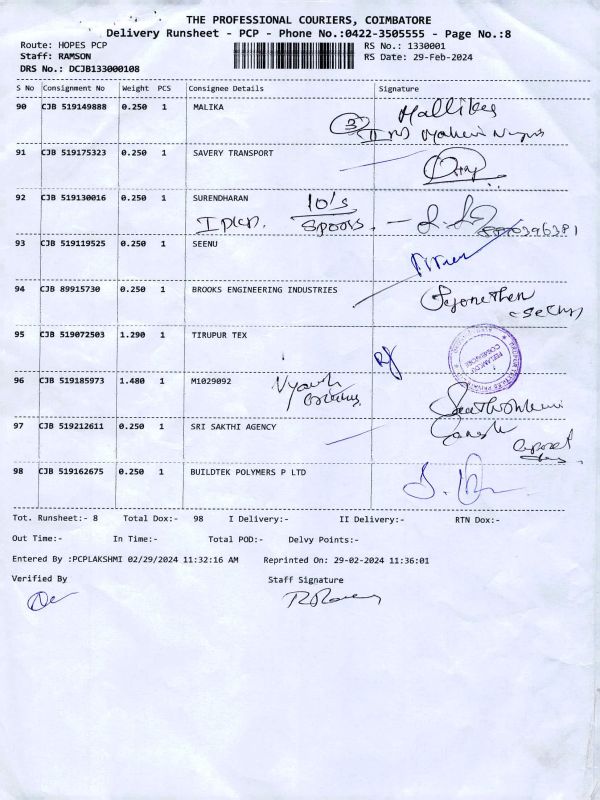 THE PROFESSIONAL COURIERS, COIMBATORE
Delivery Runsheet - PCP - Phone No.:0422-3505555 - Page No.:8
Route: HOPES PCP
RS No.: 1330001
Staff: RAMSON
RS Date: 29-Feb-2024
DRS No.: DCJB133000108
S No Consignment No Weight PCS Consignee Details Signature
90 CJB 519149888 0.250 1 MALIKA
91 CJB 519175323 0.250 1 SAVERY TRANSPORT
92 CJB 519130016 0.250 1 SURENDHARAN
10's
Spools
93 CJB 519119525 0.250 1 SEENU
94 CJB 89915730 0.250 1 BROOKS ENGINEERING INDUSTRIES
95 CJB 519072503 1.290 1 TIRUPUR TEX
96 CJB 519185973 1.480 1 M1029092
97 CJB 519212611 0.250 1 SRI SAKTHI AGENCY
98 CJB 519162675 0.250 1 BUILDTEK POLYMERS P LTD
Tot. Runsheet:- 8 Total Dox:- 98 I Delivery:- II Delivery:- RTN Dox:-
Out Time:- In Time:- Total POD:- Delvy Points:-
Entered By :PCPLAKSHMI 02/29/2024 11:32:16 AM Reprinted On: 29-02-2024 11:36:01
Verified By Staff Signature